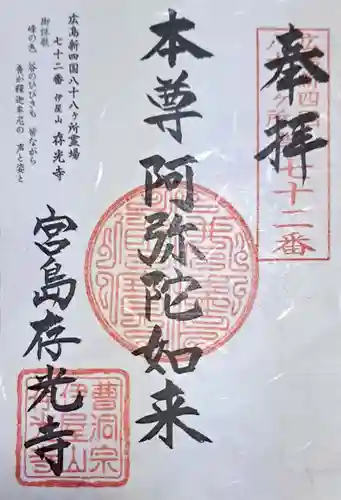 奉拝
広島新四国
八十八ヶ所
七十二番
本尊 阿弥陀如来
広島新四国八十八ヶ所霊場
七十二番 伊屋山 存光寺
御詠歌
峰の色 谷のひびきも 皆ながら
我が釋迦牟尼の 声と姿と
宮島存光寺
曹洞宗
伊屋山
存光寺